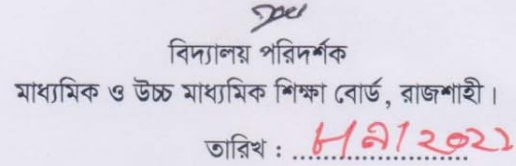 বিদ্যালয় পরিদর্শক
মাধ্যমিক ও উচ্চ মাধ্যমিক শিক্ষা বোর্ড, রাজশাহী।
তারিখ :